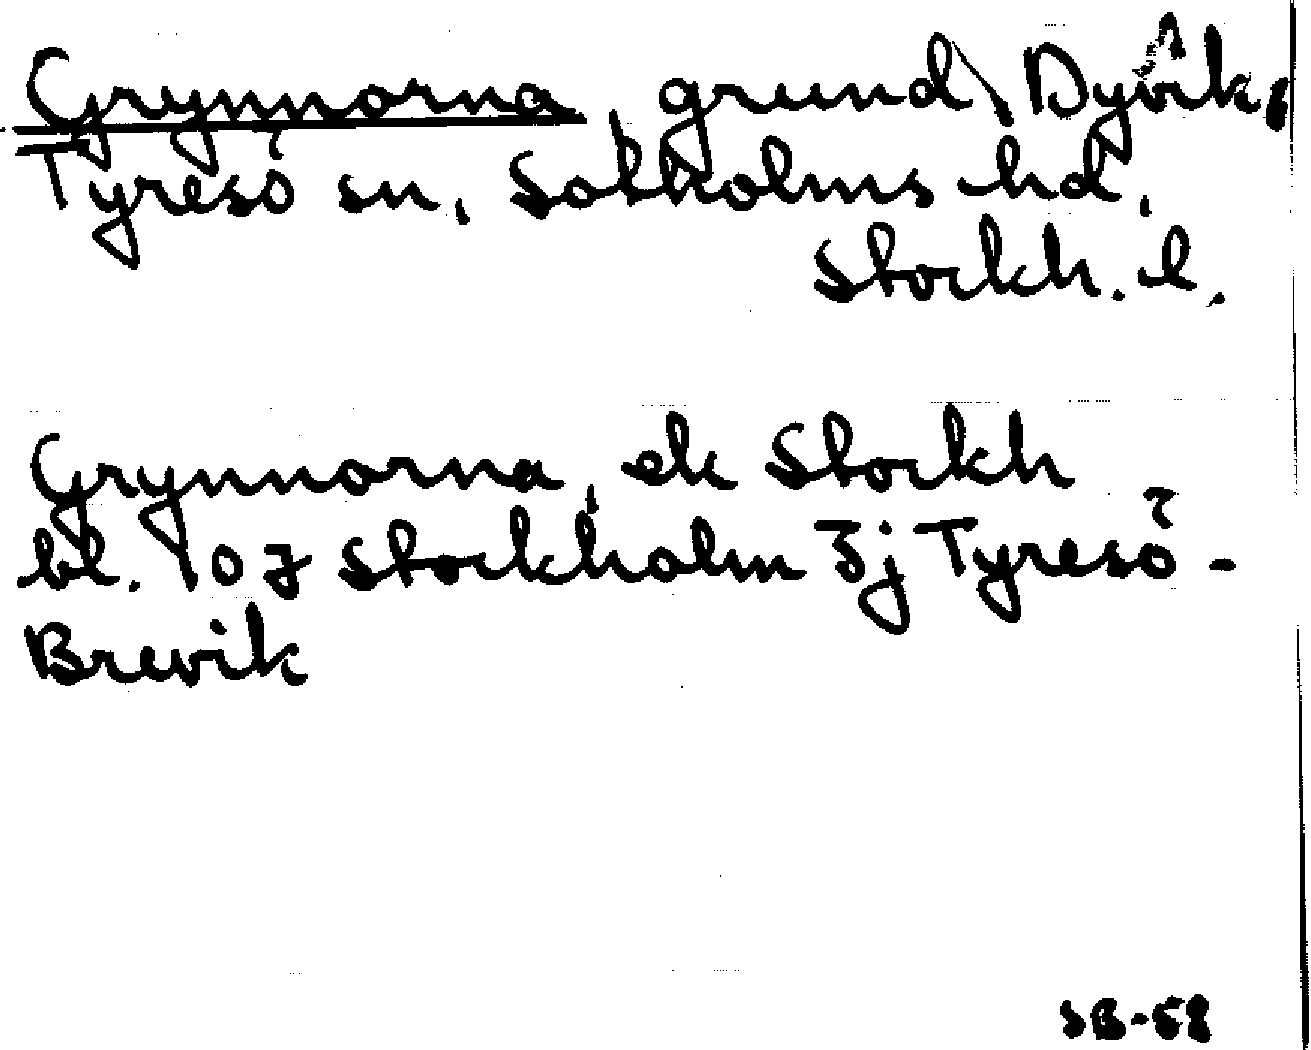 Grynnorna, grund, Dyvik,
Tyresö sn, Sotholms hd,
Stockh. l.
Grynnorna, ek Stockh
bl. 107 Stockholm 3j Tyresö-
Brevik
SB-58